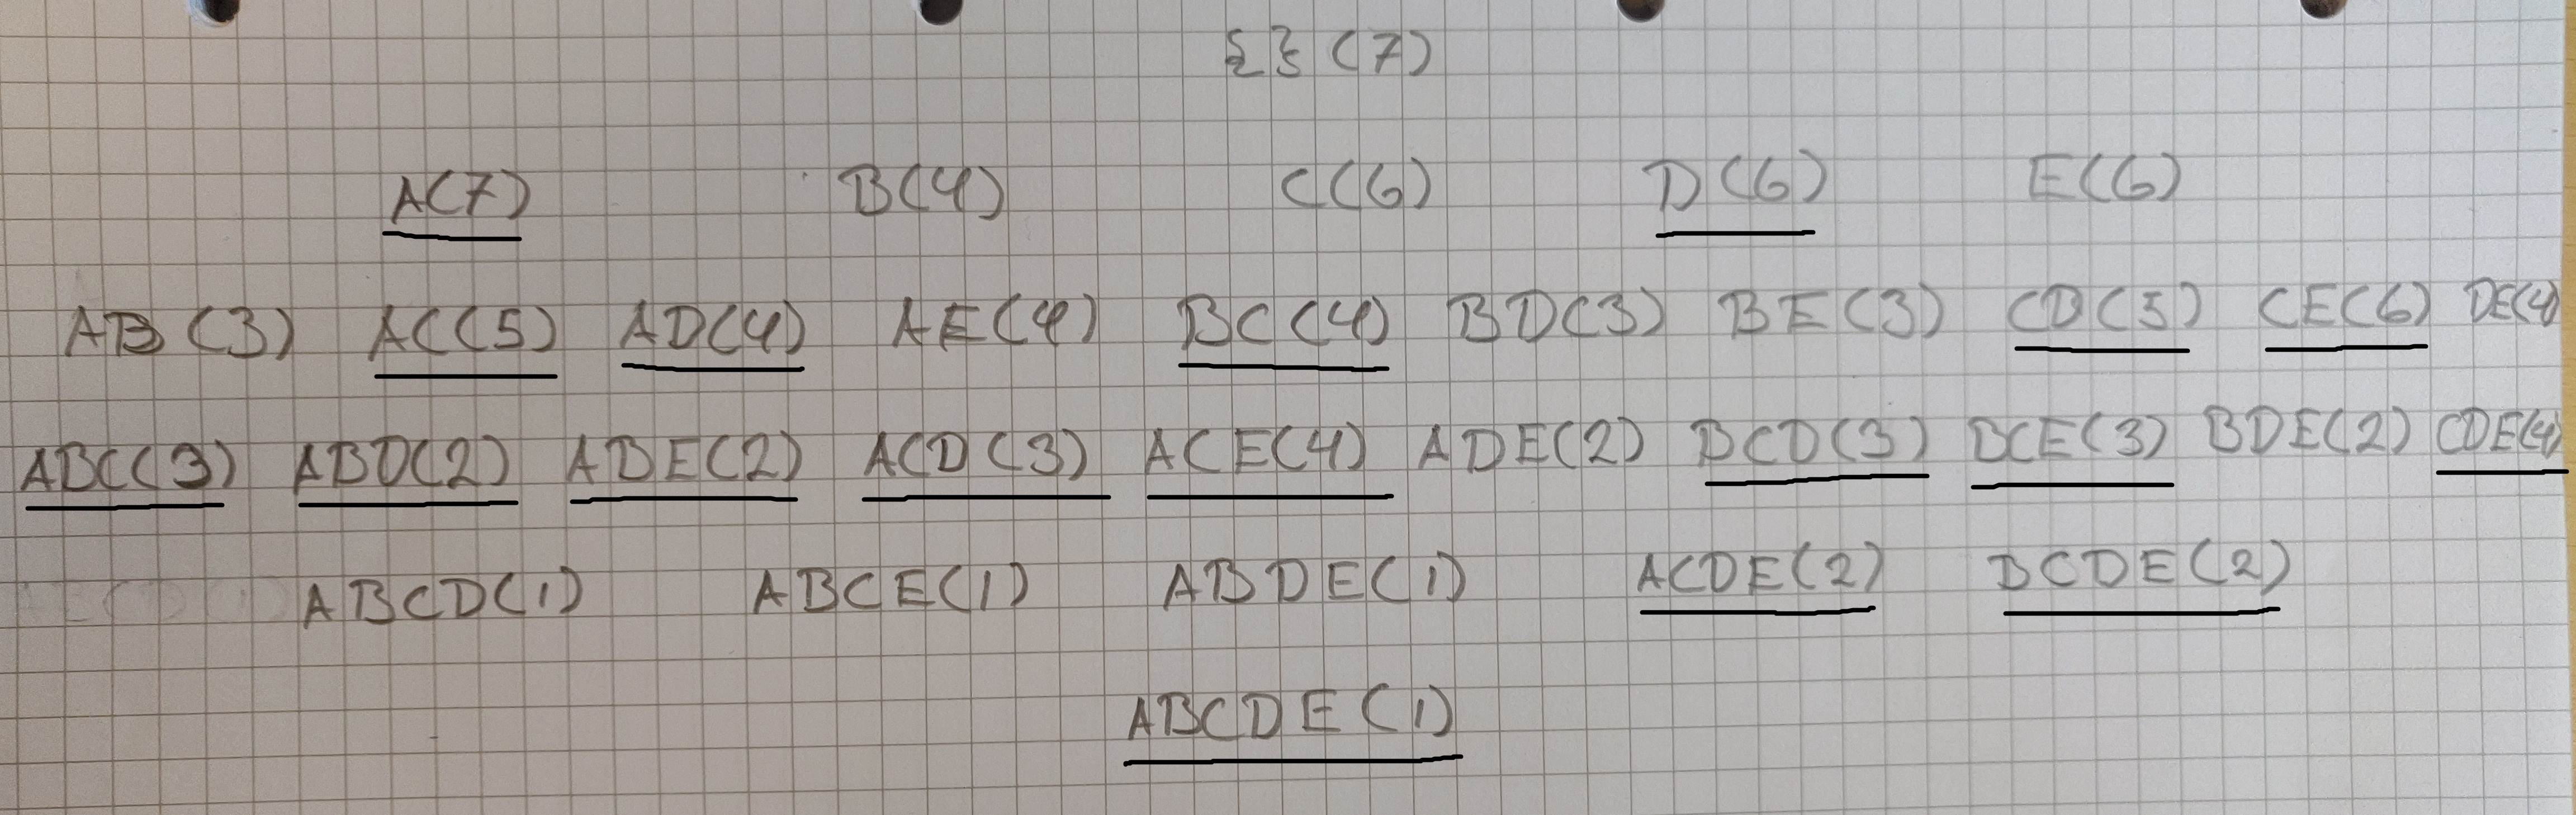 {} (7)
A(7) B(4) C(6) D(6) E(6)
AB (3) AC(5) AD(4) AE(4) BC(4) BD(3) BE(3) CD(5) CE(6) DE(4)
ABC(3) ABD(2) ABE(2) ACD(3) ACE(4) ADE(2) BCD(3) BCE(3) BDE(2) CDE(4)
ABCD(1) ABCE(1) ABDE(1) ACDE(2) BCDE(2)
ABCDE(1)